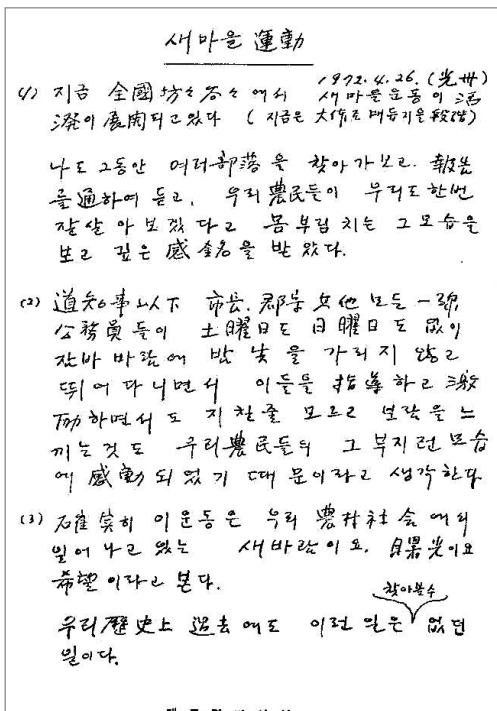 새마을 運動
1972. 4. 26. (光州)
(1) 지금 全國坊々谷々에서 새마을운동이 活
潑이 展開되고 있다 (지금은
나도 그동안 여러 部落을 찾아가보고, 報告
를 通하여 듣고, 우리 農民들이 우리도 한번
잘 살아 보겠다고 몸부림치는 그 모습을
보고 깊은 感銘을 받았다.
(2) 道知事 以下 市長, 郡守 其他 모든 一線
公務員들이 土曜日도 日曜日도 없이
잠바 바람에 밤낮을 가리지 않고
뛰어다니면서 이들을 指導하고 激
励하면서도 지칠줄 모르고 보람을 느
끼는것도 우리 農民들의 그 부지런 모습
에 感動되었기 때문이라고 생각한다
(3) 確實히 이 운동은 우리 農村社会에서
일어나고 있는 새바람이요, 曙光이요
希望이라고 본다.
찾아볼수
우리 歷史上 過去에도 이런 일은 없던
일이다.